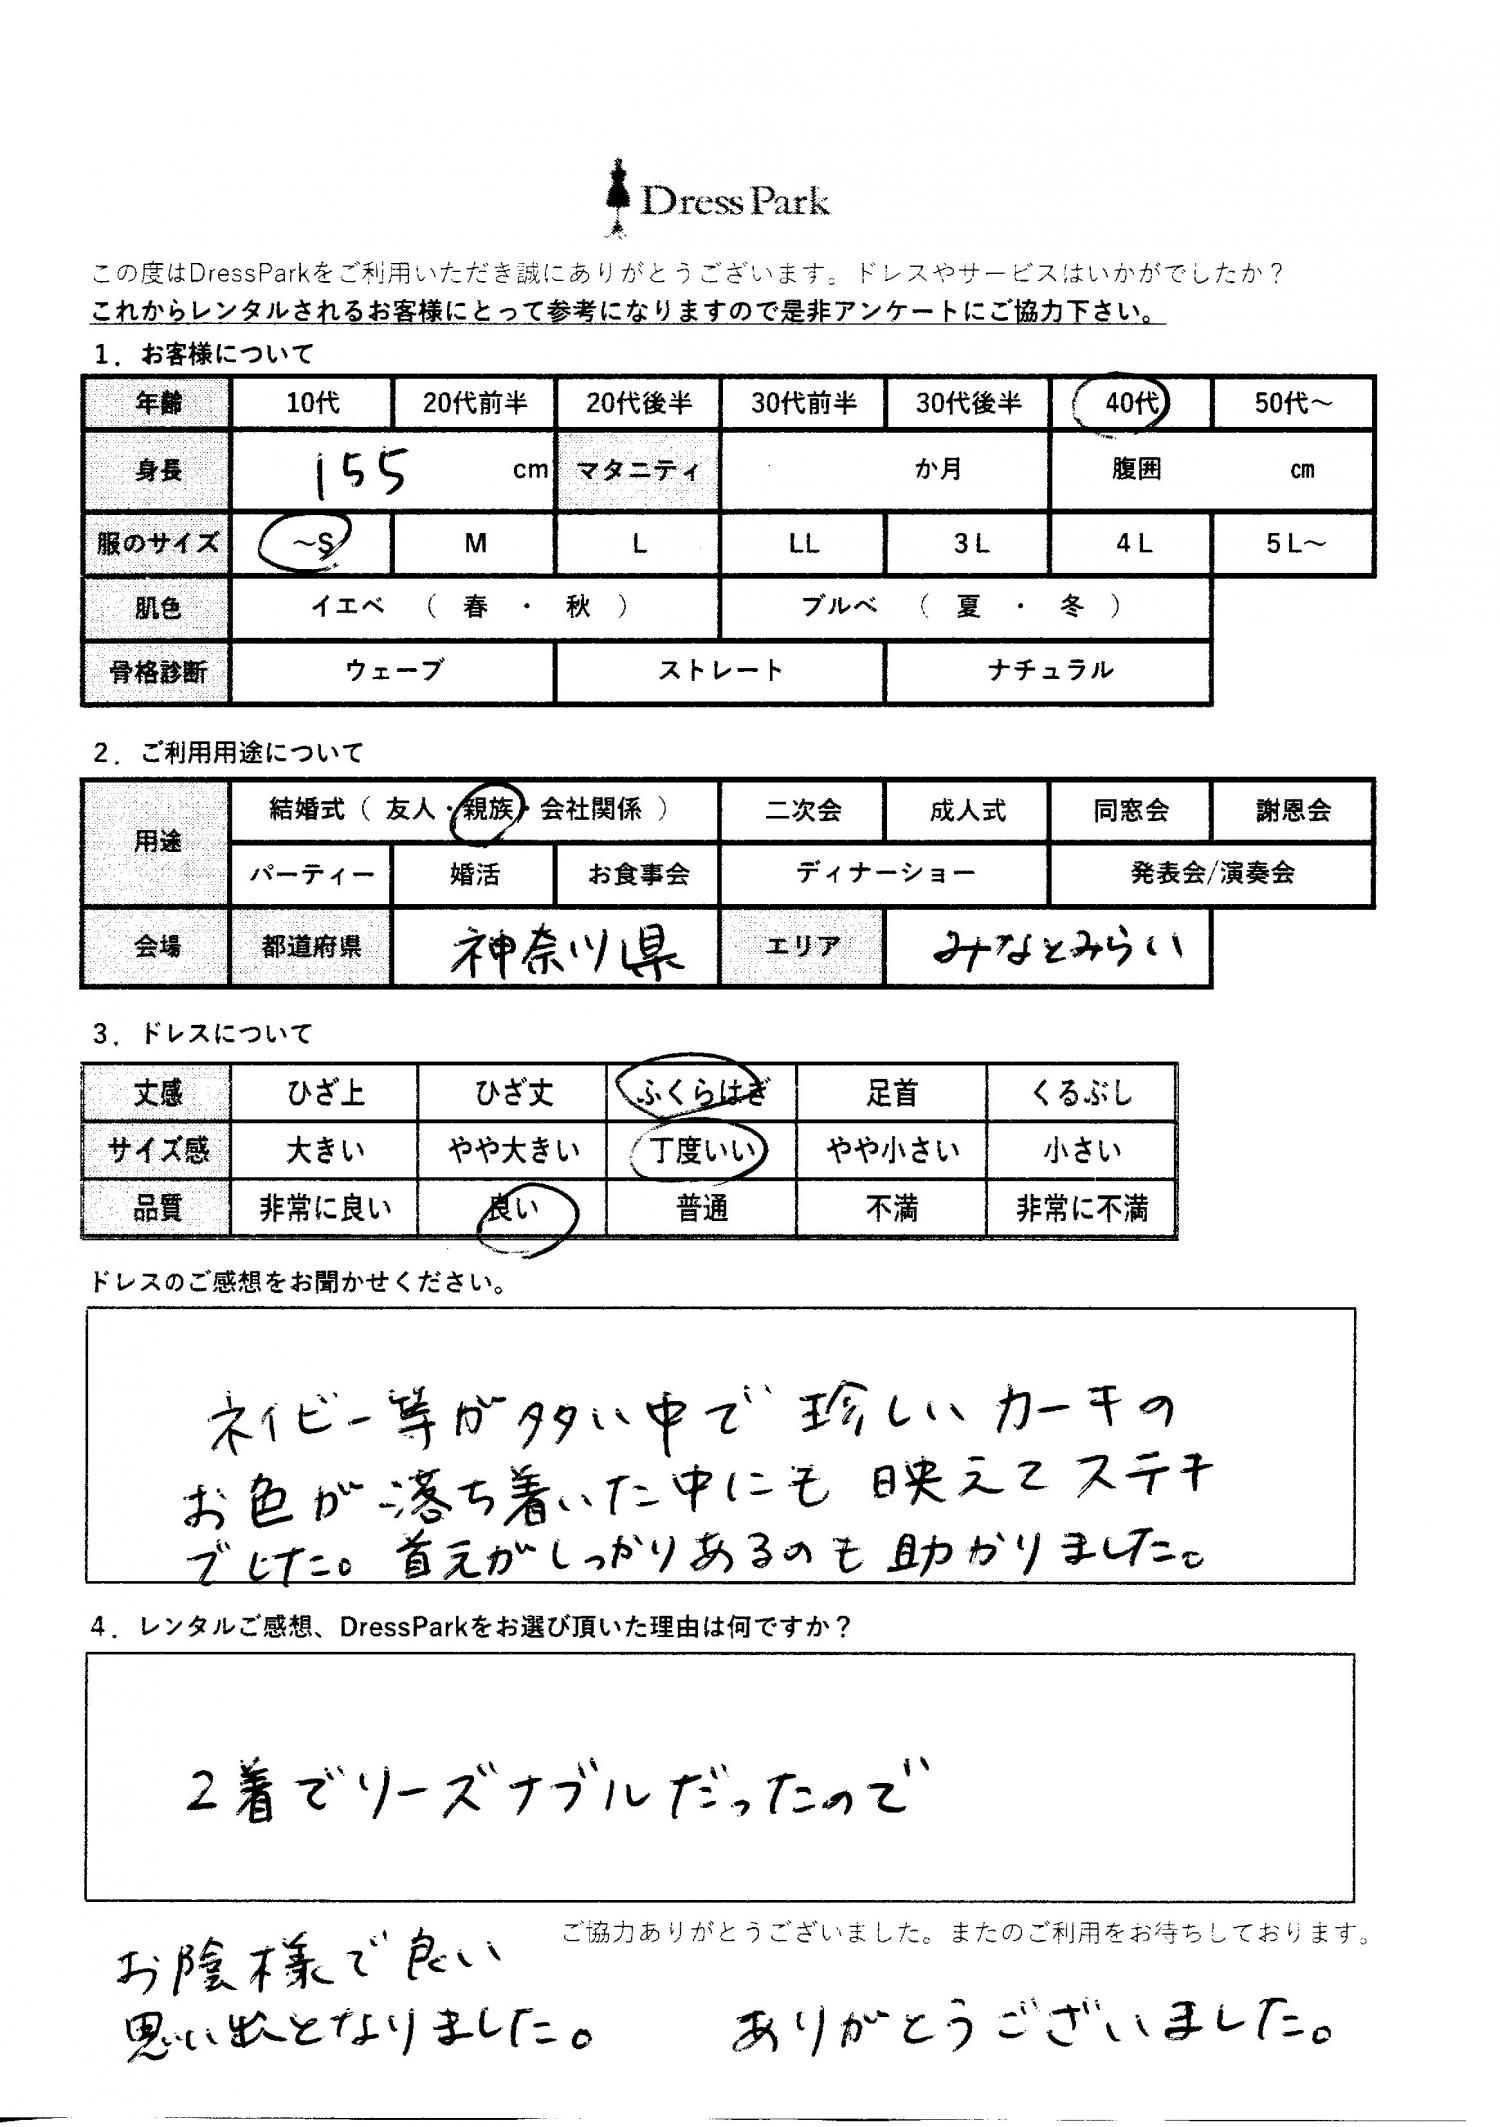 Dress Park
この度はDressParkをご利用いただき誠にありがとうございます。ドレスやサービスはいかがでしたか？
これからレンタルされるお客様にとって参考になりますので是非アンケートにご協力下さい。
1．お客様について
年齢 10代 20代前半 20代後半 30代前半 30代後半 40代 50代～
身長 155 cm マタニティ か月 腹囲 cm
服のサイズ ～S M L LL 3L 4L 5L～
肌色 イエベ （ 春 ・ 秋 ） ブルベ （ 夏 ・ 冬 ）
骨格診断 ウェーブ ストレート ナチュラル
2．ご利用用途について
用途 結婚式（ 友人・親族・会社関係 ） 二次会 成人式 同窓会 謝恩会
パーティー 婚活 お食事会 ディナーショー 発表会/演奏会
会場 都道府県 神奈川県 エリア みなとみらい
3．ドレスについて
丈感 ひざ上 ひざ丈 ふくらはぎ 足首 くるぶし
サイズ感 大きい やや大きい 丁度いい やや小さい 小さい
品質 非常に良い 良い 普通 不満 非常に不満
ドレスのご感想をお聞かせください。
ネイビー等が多い中で 珍しいカーキの
お色が落ち着いた中にも 映えてステキ
でした。首元がしっかりあるのも 助かりました。
4．レンタルご感想、DressParkをお選び頂いた理由は何ですか？
2着でリーズナブルだったので
ご協力ありがとうございました。またのご利用をお待ちしております。
お陰様で良い
思い出となりました。 ありがとうございました。